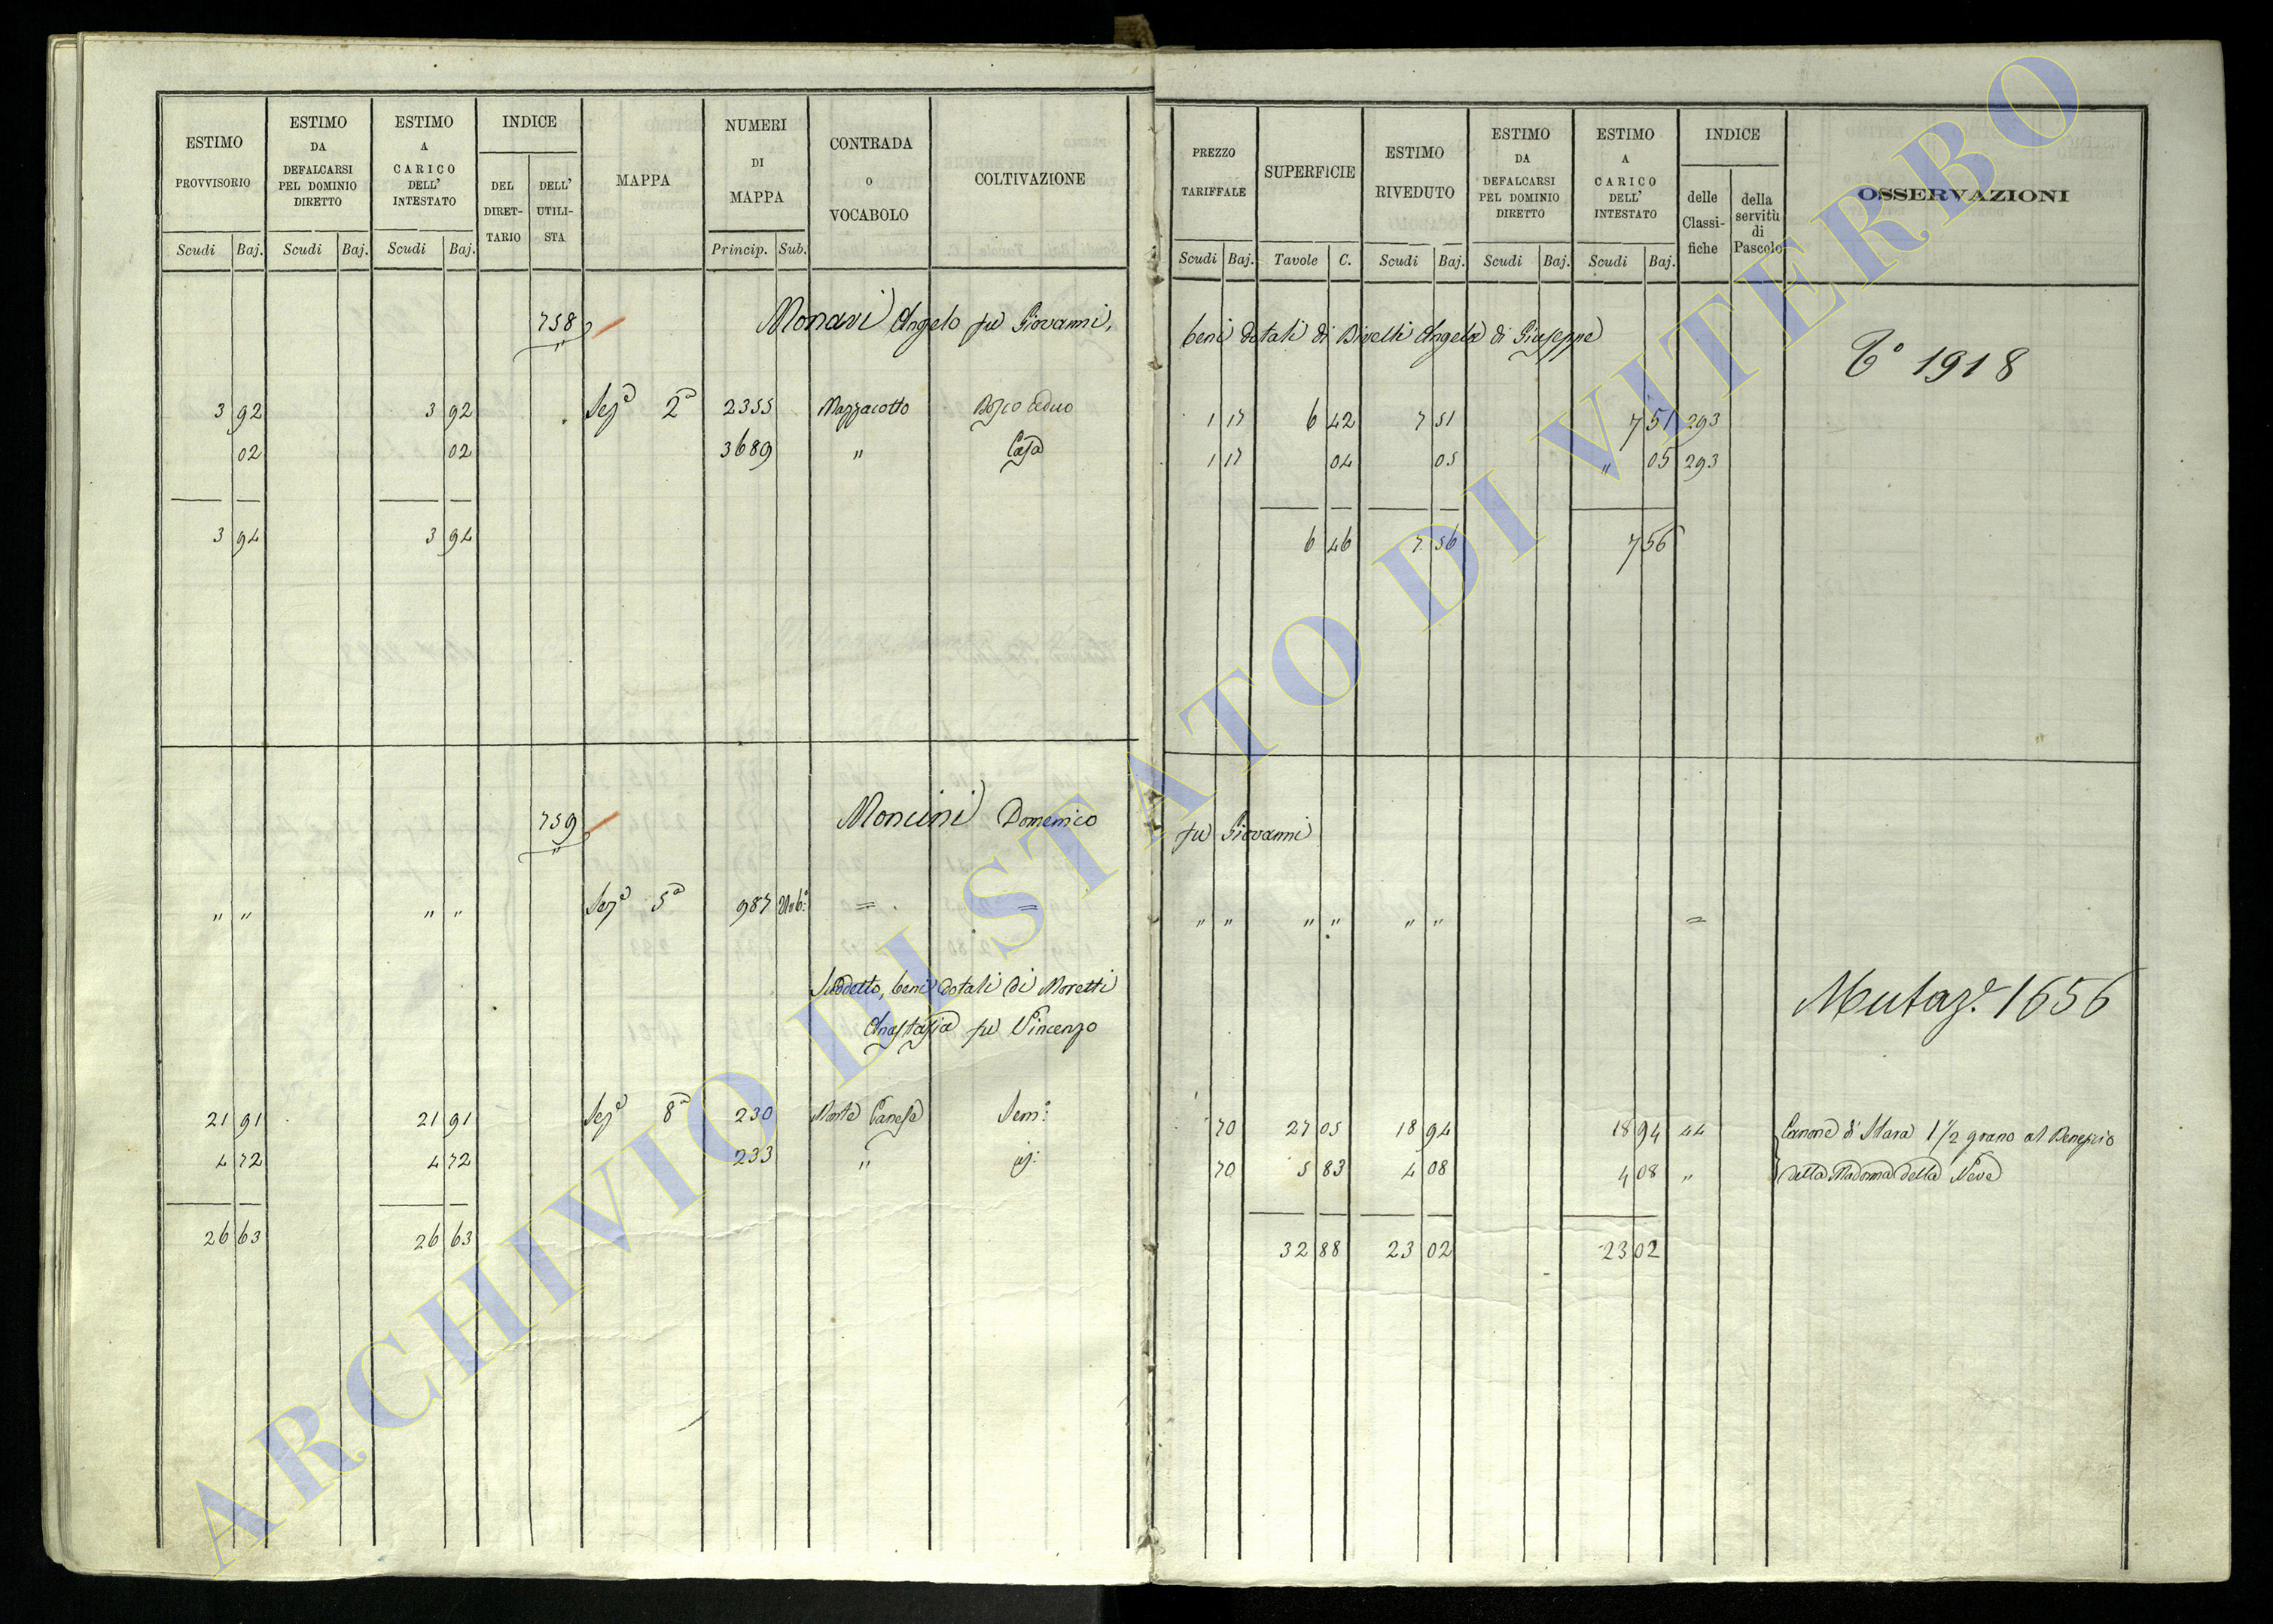 ESTIMO PROVVISORIO Scudi Baj.
ESTIMO DA DEFALCARSI PEL DOMINIO DIRETTO Scudi Baj.
ESTIMO A CARICO DELL' INTESTATO Scudi Baj.
INDICE DEL DIRET-TARIO DELL' UTILI-STA
MAPPA
NUMERI DI MAPPA Princip. Sub.
CONTRADA o VOCABOLO
COLTIVAZIONE
PREZZO TARIFFALE Scudi Baj.
SUPERFICIE Tavole C.
ESTIMO RIVEDUTO Scudi Baj.
ESTIMO DA DEFALCARSI PEL DOMINIO DIRETTO Scudi Baj.
ESTIMO A CARICO DELL' INTESTATO Scudi Baj.
INDICE delle Classi-fiche della servitù di Pascolo
OSSERVAZIONI
758 Monavi Angelo fu Giovanni, beni dotali di Angela di Giuseppe
Cº 1918
3 92 3 92 Sezª 2ª 2355 Mazzacotto Bosco ceduo 1 17 6 42 7 51 7 51 293
02 02 3689 " Casa 1 17 04 05 " 05 293
3 94 3 94 6 46 7 56 7 56
759 Moncini Domenico fu Giovanni
" " " " Sezª 5ª 987 = = " " " " " " =
Suddetto, beni dotali di Moretti
Anastasia fu Vincenzo
Mutazº. 1656
21 91 21 91 Sezª 8ª 230 Monte Canese Semº: 70 27 05 18 94 18 94 44 Canone di Stara 1 1/2 grano al Benefizio
4 72 4 72 233 " 70 5 83 4 08 4 08 " della Madonna della Neve
26 63 26 63 32 88 23 02 23 02
ARCHIVIO DI STATO DI VITERBO